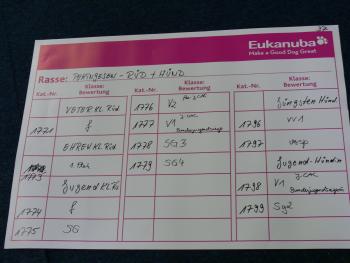 32
Eukanuba
Make a Good Dog Great.
Rasse: PEKINGESEN - RÜD + HÜND
Kat.-Nr. Klasse: Bewertung
VETER KL Rüd
1721 f
EHREN KL Rüd
1773 1. Platz
Jugend KL Rü
1774 f
1775 SG
Kat.-Nr. Klasse: Bewertung
1776 V2
1777 V1
1778 SG3
1779 SG4
Kat.-Nr. Klasse: Bewertung
Jüngsten Hünd
1796 vv1
1797 vsp
Jugend-Hündin
1798 V1
1799 Sg2